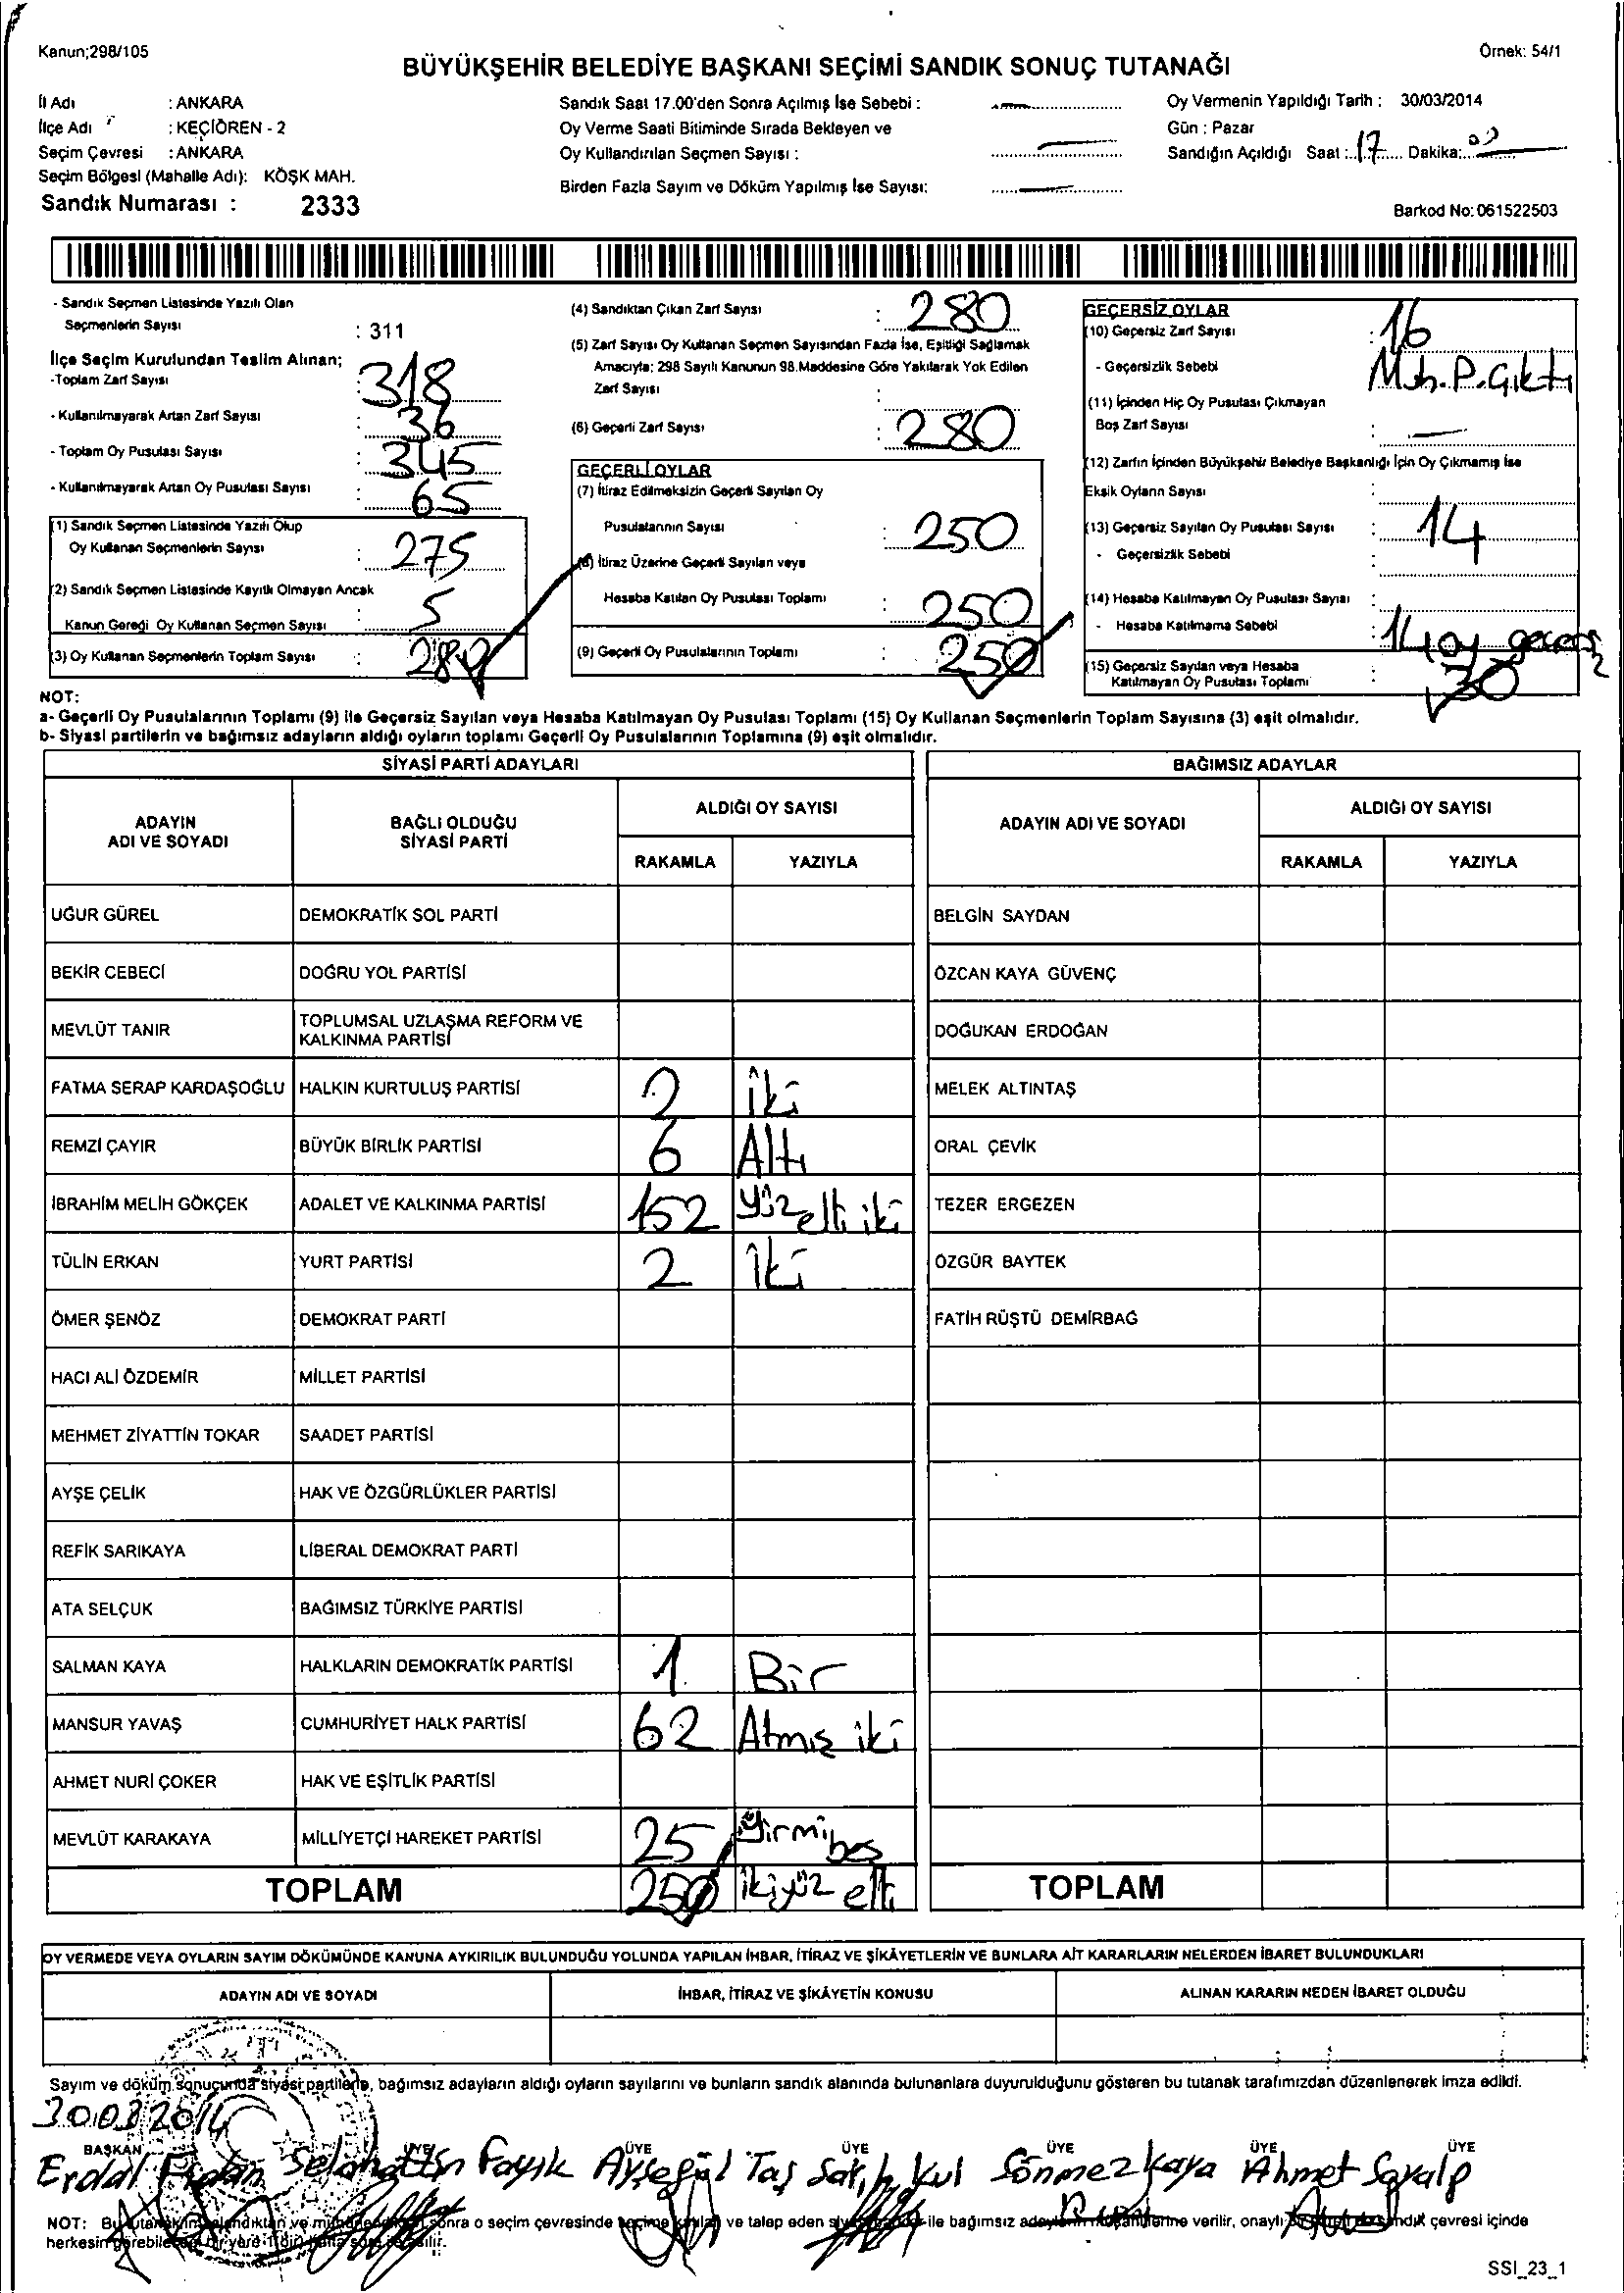 Kanun;298/105
Örnek: 54/1
BÜYÜKŞEHİR BELEDİYE BAŞKANI SEÇİMİ SANDIK SONUÇ TUTANAĞI
İl Adı : ANKARA
İlçe Adı : KEÇİÖREN - 2
Seçim Çevresi : ANKARA
Seçim Bölgesi (Mahalle Adı): KÖŞK MAH.
Sandık Numarası : 2333
Sandık Saat 17.00'den Sonra Açılmış İse Sebebi :
Oy Verme Saati Bitiminde Sırada Bekleyen ve
Oy Kullandırılan Seçmen Sayısı :
Birden Fazla Sayım ve Döküm Yapılmış İse Sayısı:
Oy Vermenin Yapıldığı Tarih : 30/03/2014
Gün : Pazar
Sandığın Açıldığı Saat : 17 Dakika: 00
Barkod No: 061522503
- Sandık Seçmen Listesinde Yazılı Olan
Seçmenlerin Sayısı : 311
İlçe Seçim Kurulundan Teslim Alınan;
-Toplam Zarf Sayısı 318
- Kullanılmayarak Artan Zarf Sayısı : 36
- Toplam Oy Pusulası Sayısı : 345
- Kullanılmayarak Artan Oy Pusulası Sayısı : 65
(1) Sandık Seçmen Listesinde Yazılı Olup
Oy Kullanan Seçmenlerin Sayısı : 275
(2) Sandık Seçmen Listesinde Kayıtlı Olmayan Ancak
Kanun Gereği Oy Kullanan Seçmen Sayısı : 5
(3) Oy Kullanan Seçmenlerin Toplam Sayısı : 280
(4) Sandıktan Çıkan Zarf Sayısı : 280
(5) Zarf Sayısı Oy Kullanan Seçmen Sayısından Fazla İse, Eşitliği Sağlamak
Amacıyla; 298 Sayılı Kanunun 98.Maddesine Göre Yakılarak Yok Edilen
Zarf Sayısı :
(6) Geçerli Zarf Sayısı : 280
GEÇERLİ OYLAR
(7) İtiraz Edilmeksizin Geçerli Sayılan Oy
Pusulalarının Sayısı : 250
(8) İtiraz Üzerine Geçerli Sayılan veya
Hesaba Katılan Oy Pusulası Toplamı : 250
(9) Geçerli Oy Pusulalarının Toplamı : 250
GEÇERSİZ OYLAR
(10) Geçersiz Zarf Sayısı : 16
- Geçersizlik Sebebi Muh. P. Çıktı
(11) İçinden Hiç Oy Pusulası Çıkmayan
Boş Zarf Sayısı : —
(12) Zarfın İçinden Büyükşehir Belediye Başkanlığı İçin Oy Çıkmamış İse
Eksik Oyların Sayısı :
(13) Geçersiz Sayılan Oy Pusulası Sayısı : 14
- Geçersizlik Sebebi
(14) Hesaba Katılmayan Oy Pusulası Sayısı :
- Hesaba Katılmama Sebebi : 14 oy geçersiz
(15) Geçersiz Sayılan veya Hesaba
Katılmayan Oy Pusulası Toplamı : 30
NOT:
a- Geçerli Oy Pusulalarının Toplamı (9) ile Geçersiz Sayılan veya Hesaba Katılmayan Oy Pusulası Toplamı (15) Oy Kullanan Seçmenlerin Toplam Sayısına (3) eşit olmalıdır.
b- Siyasi partilerin ve bağımsız adayların aldığı oyların toplamı Geçerli Oy Pusulalarının Toplamına (9) eşit olmalıdır.
SİYASİ PARTİ ADAYLARI
ADAYIN ADI VE SOYADI BAĞLI OLDUĞU SİYASİ PARTİ ALDIĞI OY SAYISI
RAKAMLA YAZIYLA
UĞUR GÜREL DEMOKRATİK SOL PARTİ
BEKİR CEBECİ DOĞRU YOL PARTİSİ
MEVLÜT TANIR TOPLUMSAL UZLAŞMA REFORM VE KALKINMA PARTİSİ
FATMA SERAP KARDAŞOĞLU HALKIN KURTULUŞ PARTİSİ 2 İki
REMZİ ÇAYIR BÜYÜK BİRLİK PARTİSİ 6 Altı
İBRAHİM MELİH GÖKÇEK ADALET VE KALKINMA PARTİSİ 152 yüz elli iki
TÜLİN ERKAN YURT PARTİSİ 2 İki
ÖMER ŞENÖZ DEMOKRAT PARTİ
HACI ALİ ÖZDEMİR MİLLET PARTİSİ
MEHMET ZİYATTİN TOKAR SAADET PARTİSİ
AYŞE ÇELİK HAK VE ÖZGÜRLÜKLER PARTİSİ
REFİK SARIKAYA LİBERAL DEMOKRAT PARTİ
ATA SELÇUK BAĞIMSIZ TÜRKİYE PARTİSİ
SALMAN KAYA HALKLARIN DEMOKRATİK PARTİSİ 1 Bir
MANSUR YAVAŞ CUMHURİYET HALK PARTİSİ 62 Atmış iki
AHMET NURİ ÇOKER HAK VE EŞİTLİK PARTİSİ
MEVLÜT KARAKAYA MİLLİYETÇİ HAREKET PARTİSİ 25 Yirmi beş
TOPLAM 250 ikiyüz elli
BAĞIMSIZ ADAYLAR
ADAYIN ADI VE SOYADI ALDIĞI OY SAYISI
RAKAMLA YAZIYLA
BELGİN SAYDAN
ÖZCAN KAYA GÜVENÇ
DOĞUKAN ERDOĞAN
MELEK ALTINTAŞ
ORAL ÇEVİK
TEZER ERGEZEN
ÖZGÜR BAYTEK
FATİH RÜŞTÜ DEMİRBAĞ
TOPLAM
OY VERMEDE VEYA OYLARIN SAYIM DÖKÜMÜNDE KANUNA AYKIRILIK BULUNDUĞU YOLUNDA YAPILAN İHBAR, İTİRAZ VE ŞİKÂYETLERİN VE BUNLARA AİT KARARLARIN NELERDEN İBARET BULUNDUKLARI
ADAYIN ADI VE SOYADI İHBAR, İTİRAZ VE ŞİKÂYETİN KONUSU ALINAN KARARIN NEDEN İBARET OLDUĞU
Sayım ve döküm sonucunda siyasi partilerle, bağımsız adayların aldığı oyların sayılarını ve bunların sandık alanında bulunanlara duyurulduğunu gösteren bu tutanak tarafımızdan düzenlenerek imza edildi.
30.03.2014
BAŞKAN ÜYE ÜYE ÜYE ÜYE ÜYE ÜYE
Erdal Selahattin Fayık Ayşegül Taş Salih Kul Sönmez Kaya Ahmet Sayalp
NOT: Bu sonra o seçim çevresinde ve talep eden ile bağımsız verilir, onaylı çevresi içinde
herkesin
SSI_23_1